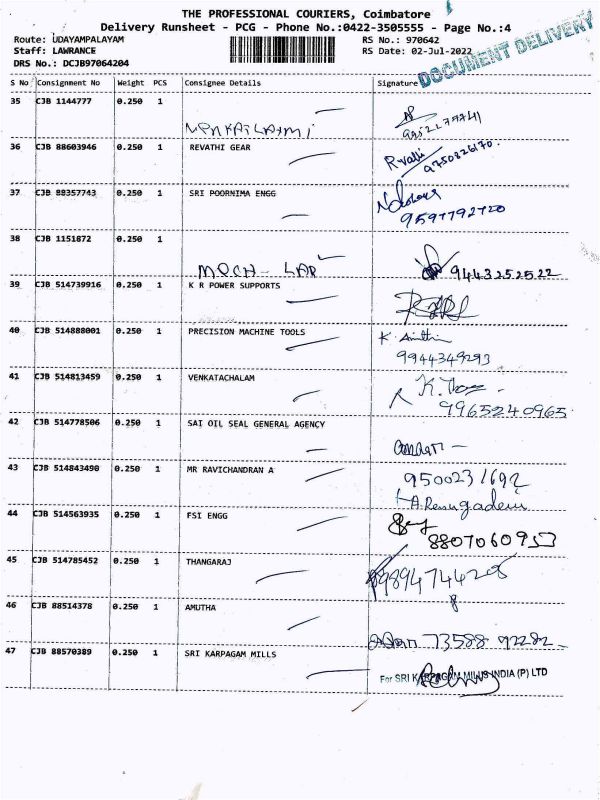 THE PROFESSIONAL COURIERS, Coimbatore
Delivery Runsheet - PCG - Phone No.:0422-3505555 - Page No.:4
Route: UDAYAMPALAYAM RS No.: 970642
Staff: LAWRANCE RS Date: 02-Jul-2022
DRS No.: DCJB97064204
DOCUMENT DELIVERY
S No Consignment No Weight PCS Consignee Details Signature
35 CJB 1144777 0.250 1
36 CJB 88603946 0.250 1 REVATHI GEAR
Rvathi 9750826170.
37 CJB 88357743 0.250 1 SRI POORNIMA ENGG
9597792720
38 CJB 1151872 0.250 1
MECH - LAB 9443252522
39 CJB 514739916 0.250 1 K R POWER SUPPORTS
40 CJB 514888001 0.250 1 PRECISION MACHINE TOOLS
9944349293
41 CJB 514813459 0.250 1 VENKATACHALAM
9965240965
42 CJB 514778506 0.250 1 SAI OIL SEAL GENERAL AGENCY
43 CJB 514843490 0.250 1 MR RAVICHANDRAN A
9500231692
44 CJB 514563935 0.250 1 FSI ENGG
8807060953
45 CJB 514785452 0.250 1 THANGARAJ
9894744205
46 CJB 88514378 0.250 1 AMUTHA
73588 92282
47 CJB 88570389 0.250 1 SRI KARPAGAM MILLS
For SRI KARPAGAM MILLS INDIA (P) LTD